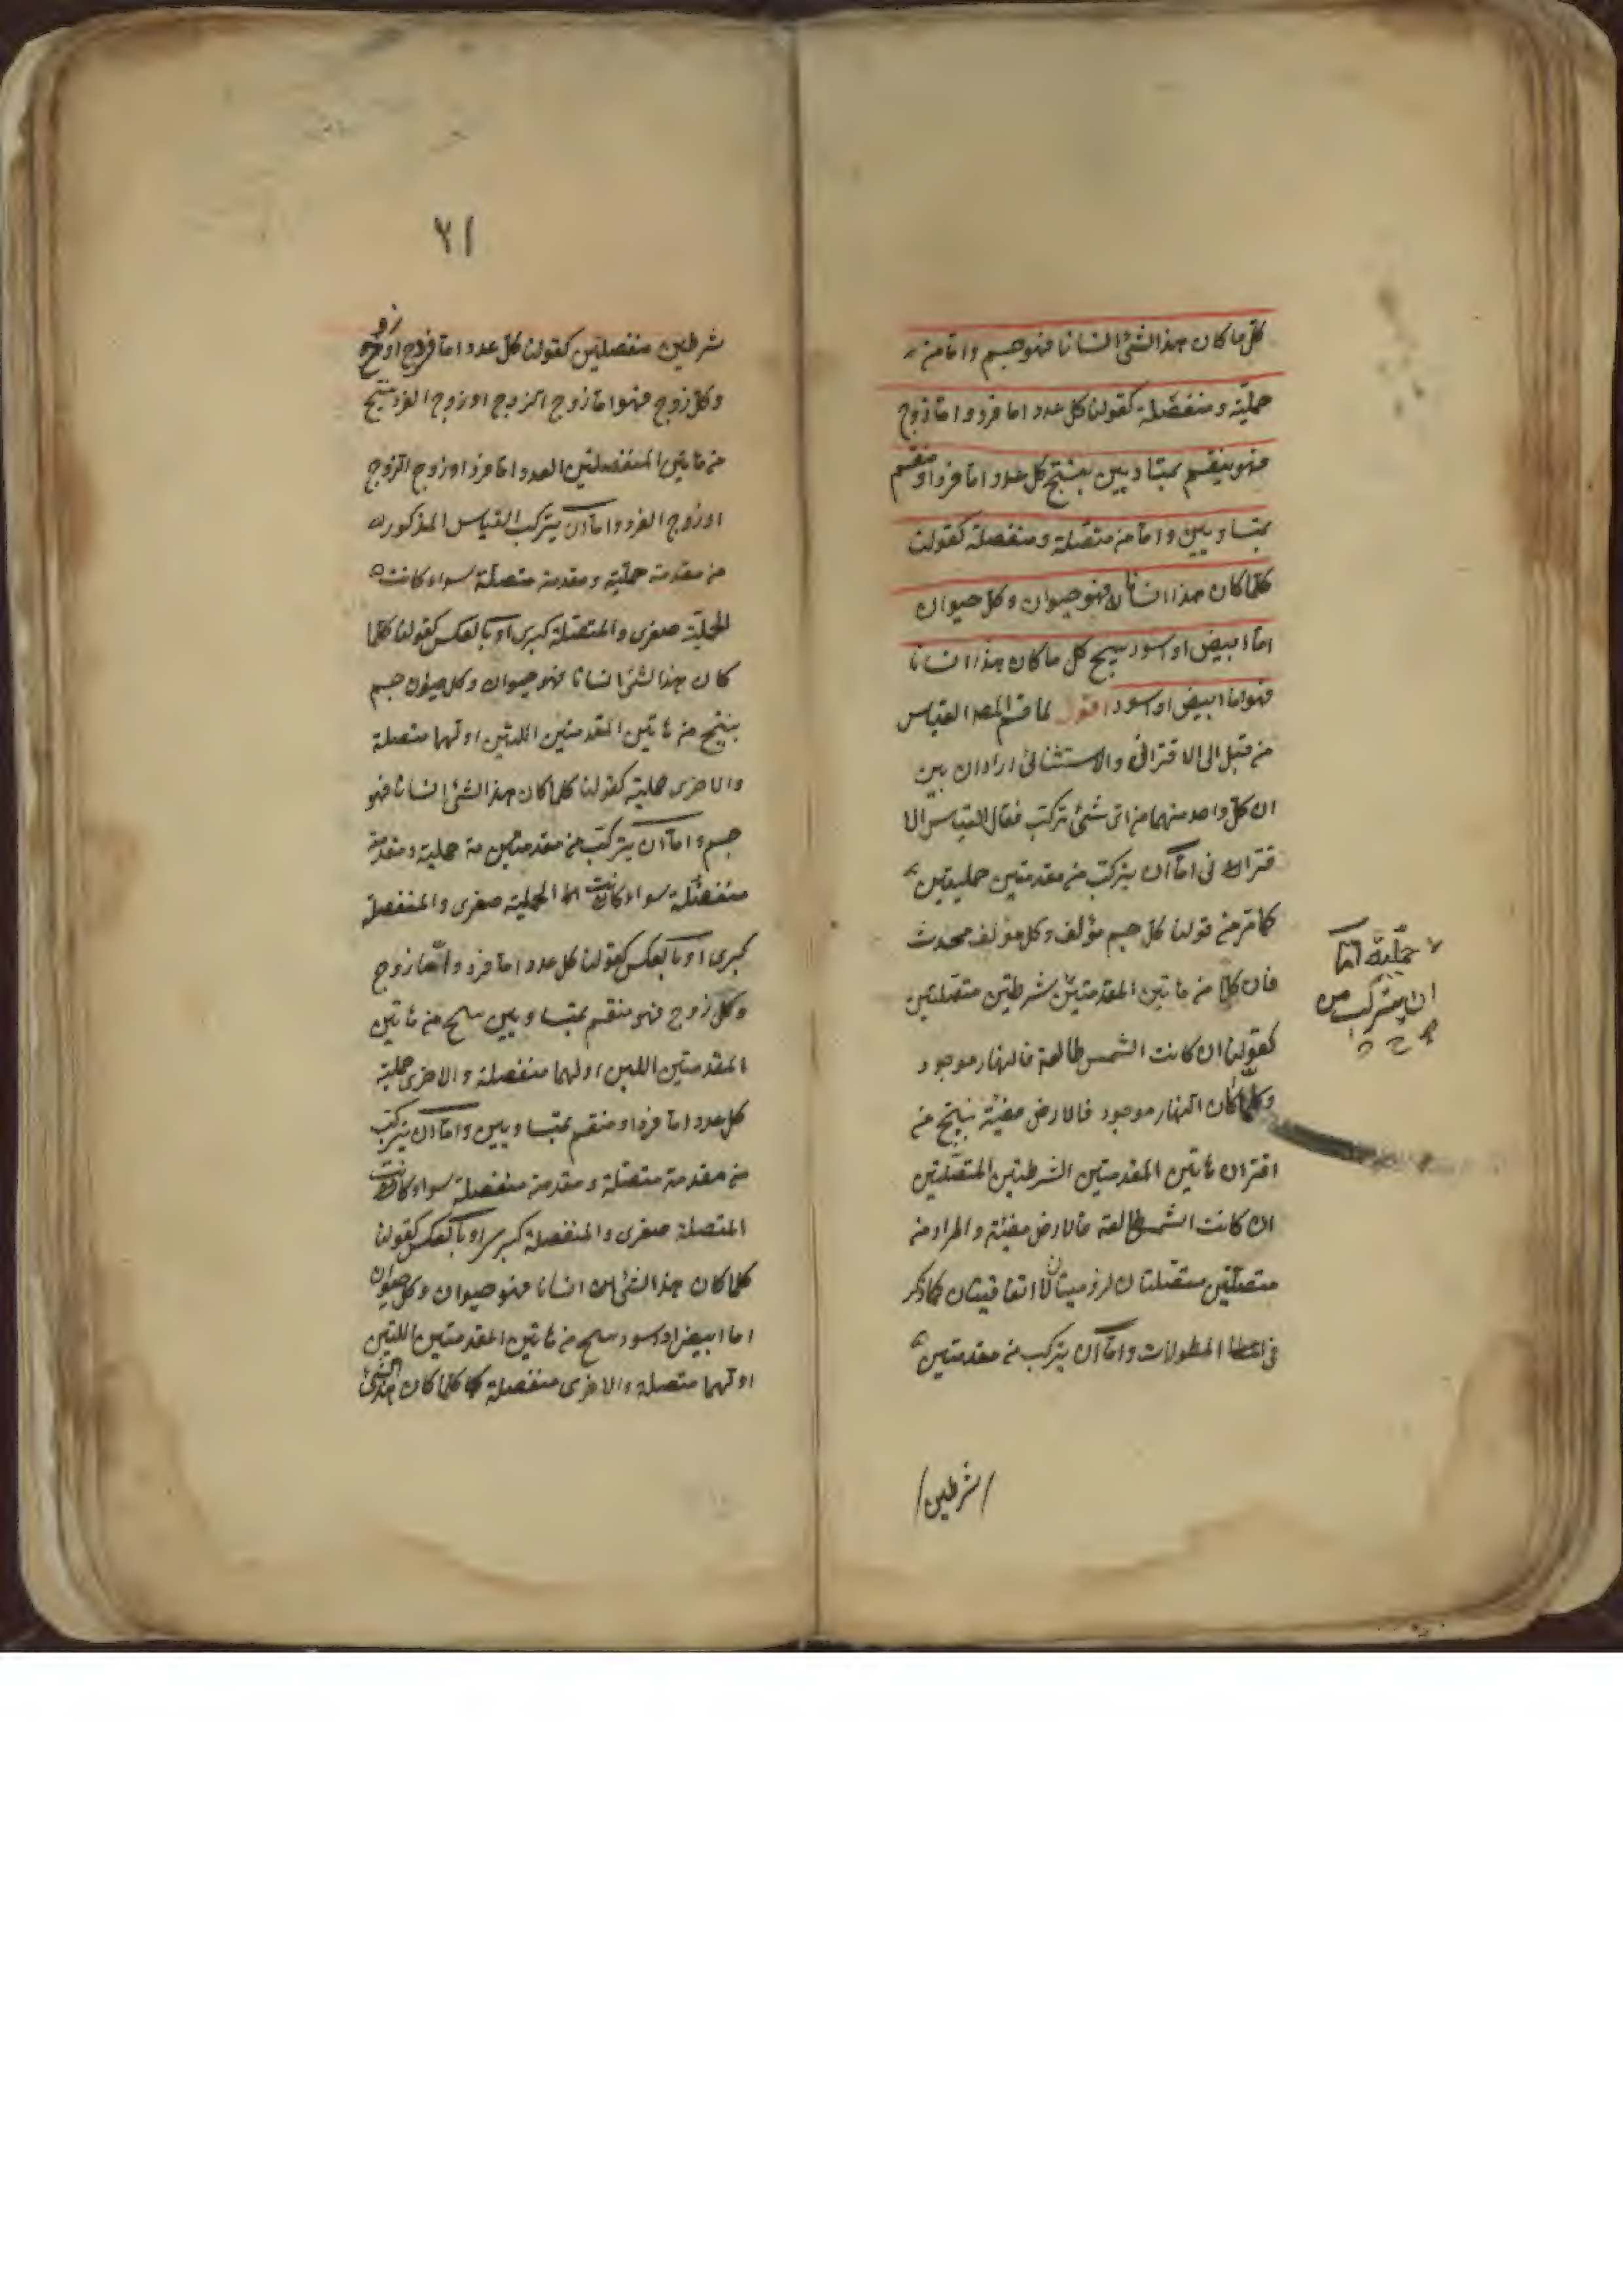 كل ما كان هذا الشئ انسانا فهو جسم واما من
حملية ومنفصلة كقولنا كل عدد اما فرد واما زوج
فهو ينقسم بمتساويين ينتج كل عدد اما فرد او منقسم
بمتساويين واما من متصلة ومنفصلة كقولنا
كلما كان هذا انسانا فهو حيوان وكل حيوان
اما ابيض او اسود ينتج كل ما كان هذا انسانا
فهو اما ابيض او اسود اقول لما قسم المص القياس
من قبل الى الاقترانى والاستثنائى اراد ان يبين
ان كل واحد منهما من اى شئ تركب فقال القياس الا
قترانى اما ان يتركب من مقدمتين حمليتين
كما مر من قولنا كل جسم مؤلف وكل مؤلف محدث
فان كلا من هاتين المقدمتين شرطتين متصلتين
حملية اما
ان يتركب من
صح
كقولنا ان كانت الشمس طالعة فالنهار موجود
وكلما كان النهار موجود فالارض مضيئة ينتج من
اقتران هاتين المقدمتين الشرطتين المتصلتين
ان كانت الشمس طالعة فالارض مضيئة والمراد من
متصلتين متصلتان لزوميتان لا اتفاقيتان كما ذكر
فى المطولات واما ان يتركب من مقدمتين
شرطين
٢١
شرطين منفصلتين كقولنا كل عدد اما فرد او زوج
وكل زوج فهو اما زوج الزوج او زوج الفرد ينتج
من هاتين المنفصلتين العدد اما فرد او زوج الزوج
او زوج الفرد واما ان يتركب القياس المذكور
من مقدمة حملية ومقدمة متصلة سواء كانت
الحملية صغرى والمتصلة كبرى او بالعكس كقولنا كلما
كان هذا الشئ انسانا فهو حيوان وكل حيوان جسم
ينتج من هاتين المقدمتين اللتين اولهما متصلة
والاخرى حملية كقولنا كلما كان هذا الشئ انسانا فهو
جسم واما ان يتركب من مقدمتين حملية ومقدمة
منفصلة سواء كانت الحملية صغرى والمنفصلة
كبرى او بالعكس كقولنا كل عدد اما فرد واما زوج
وكل زوج فهو منقسم بمتساويين ينتج من هاتين
المقدمتين اللتين اولهما منفصلة والاخرى حملية
كل عدد اما فرد او منقسم بمتساويين واما ان يتركب
من مقدمة متصلة ومقدمة منفصلة سواء كانت
المتصلة صغرى والمنفصلة كبرى او بالعكس كقولنا
كلما كان هذا الشئ انسانا فهو حيوان وكل حيوان
اما ابيض او اسود ينتج من هاتين المقدمتين اللتين
اولهما متصلة والاخرى منفصلة كلما كان هذا الشئ